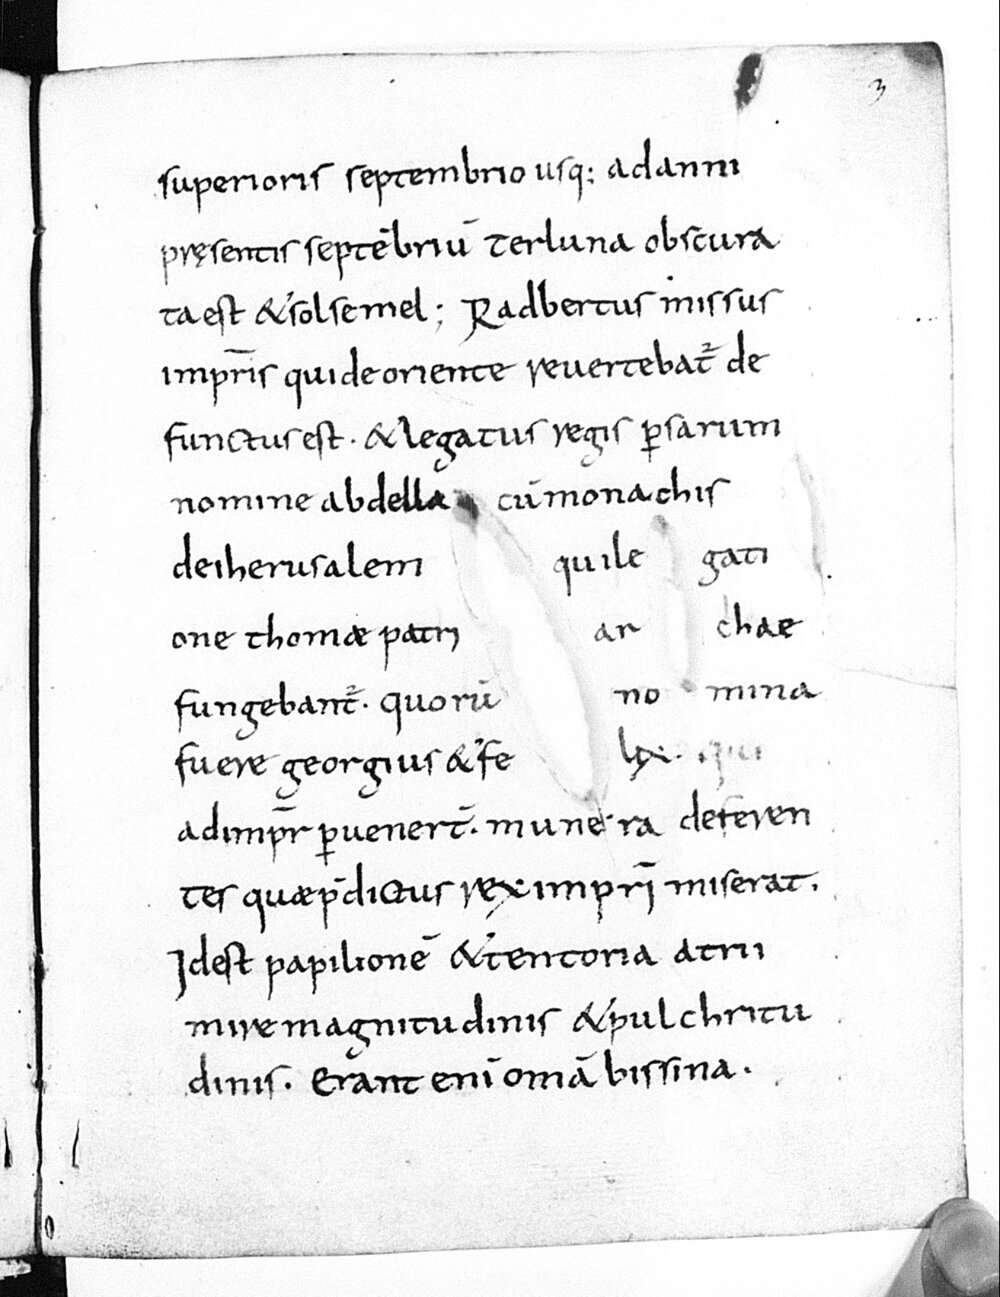 3
superioris septembrio usq; ad anni
pręsentis septēbriū ter luna obscura
ta est & sol semel; Radbertus missus
impr̄is qui de oriente reuertebat̄ de
functus est. & legatus regis ꝑsarum
nomine abdella cū monachis
de iherusalem qui le gati
one thomæ patri ar chae
fungebant̄. quorū no mina
fuere georgius & fe lix. qui
ad impr̄ ꝑuenert̄. mune ra deferen
tes quæ p̄dictus rex impr̄i miserat.
Id est papilionē & tentoria atrii
mire magnitudinis & pulchritu
dinis. Erant enī omā bissina.